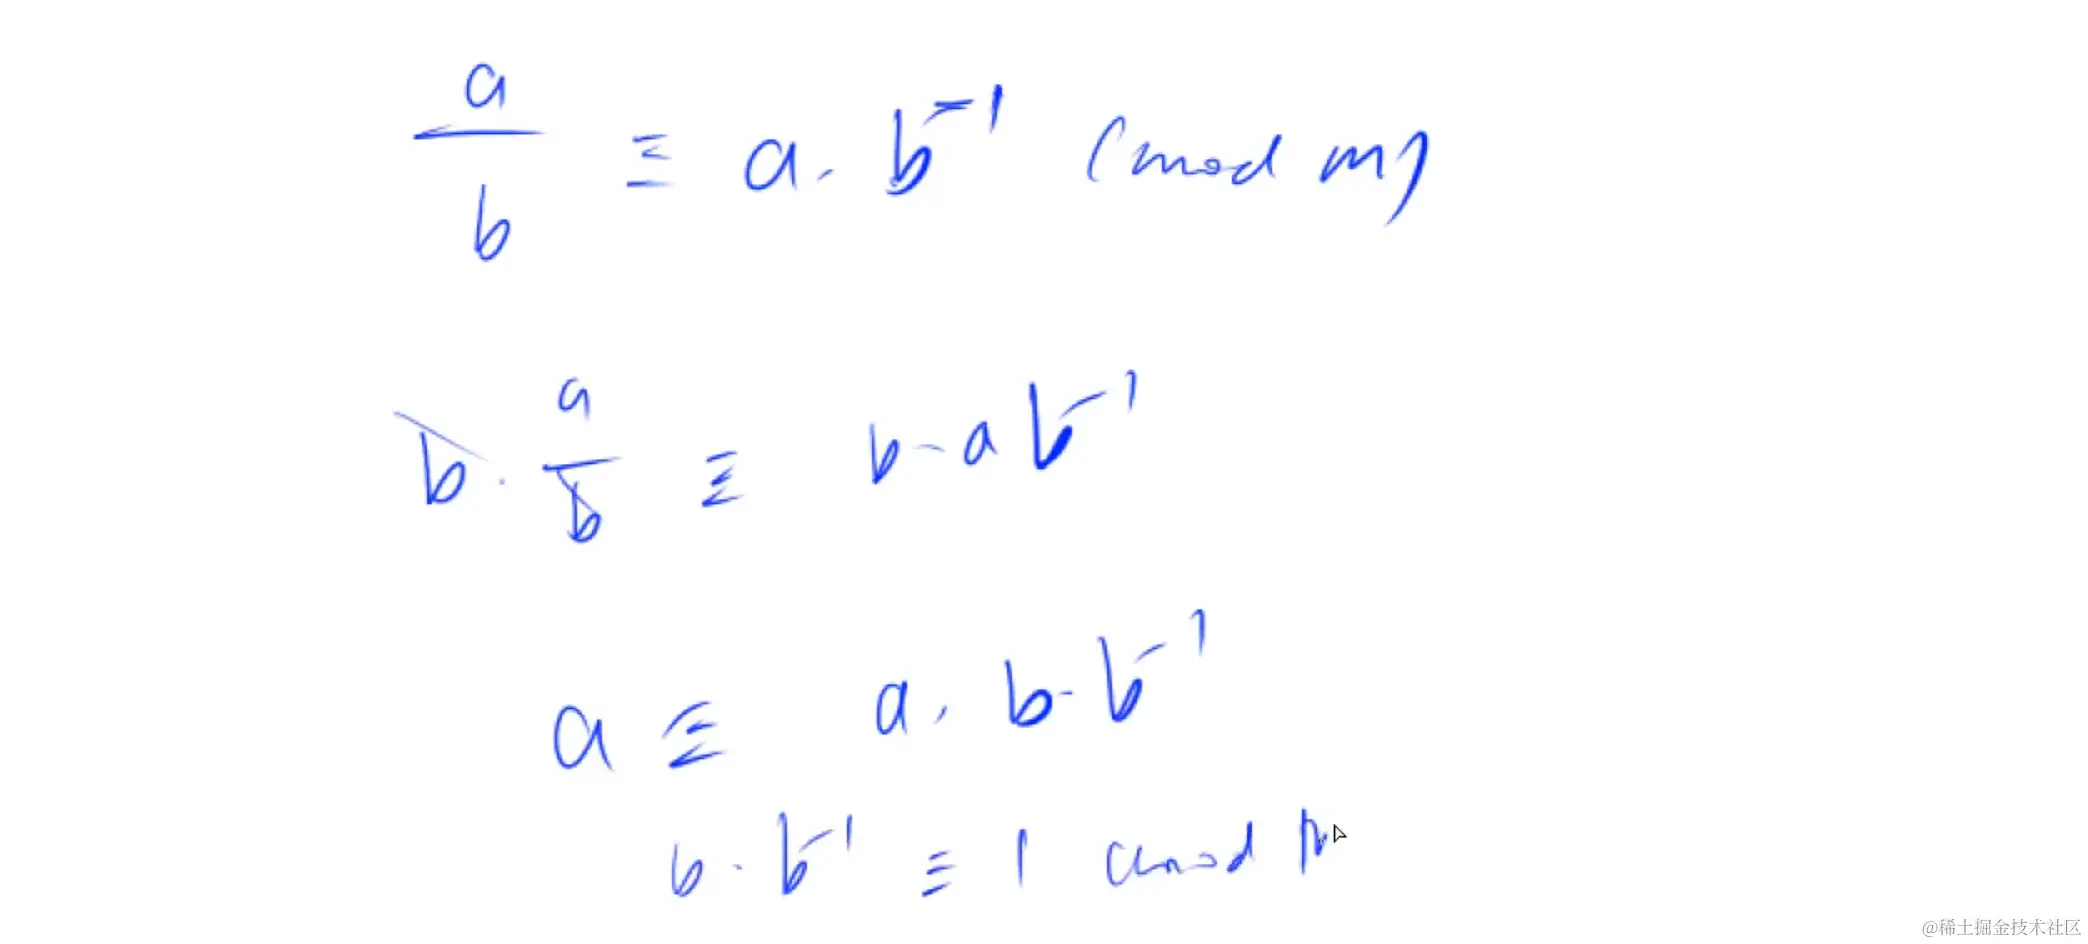 a/b ≡ a · b⁻¹ (mod m)
b · a/b ≡ b · a b⁻¹
a ≡ a · b · b⁻¹
b · b⁻¹ ≡ 1 (mod
@稀土掘金技术社区